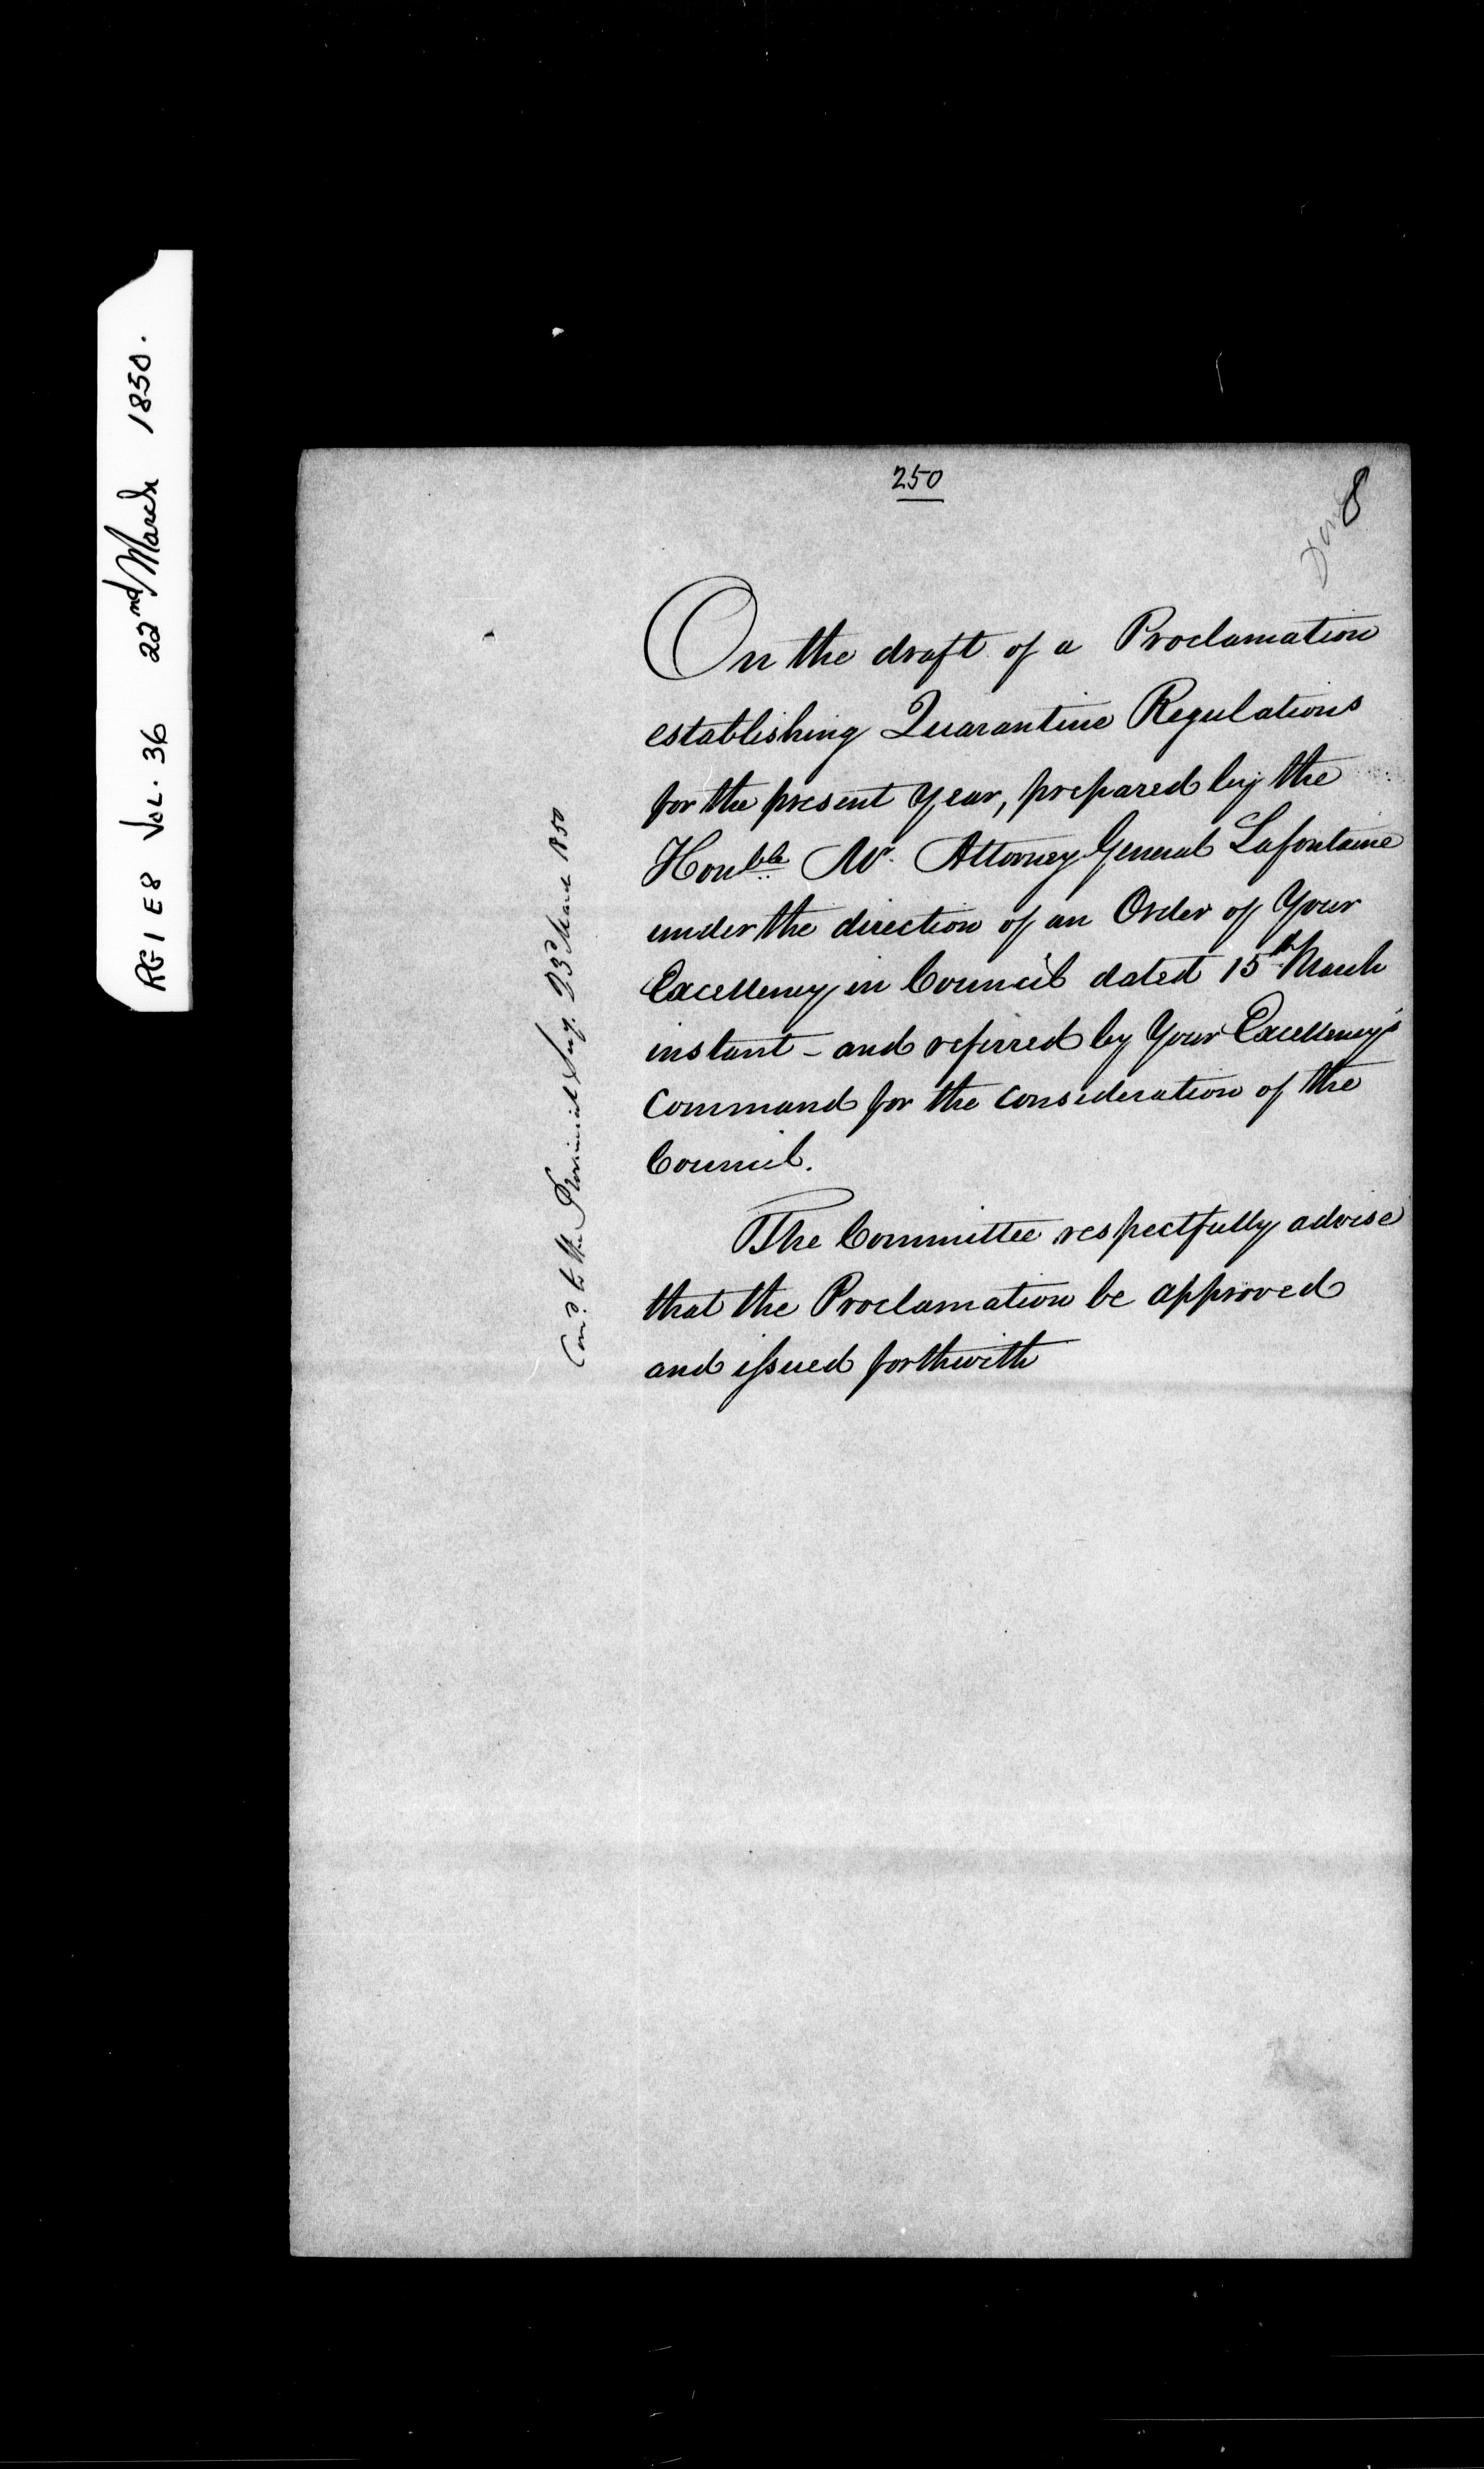 RG 1 E8 Vol. 36 22nd March 1850.
250
8
On the draft of a Proclamation
establishing Quarantine Regulations
for the present Year, prepared by the
Honble Mr. Attorney General Lafontaine
under the direction of an Order of Your
Excellency in Council dated 15th March
instant - and referred by Your Excellency's
Command for the consideration of the
Council.
The Committee respectfully advise
that the Proclamation be approved
and issued forthwith
to the Provincial Secy. 23d March 1850